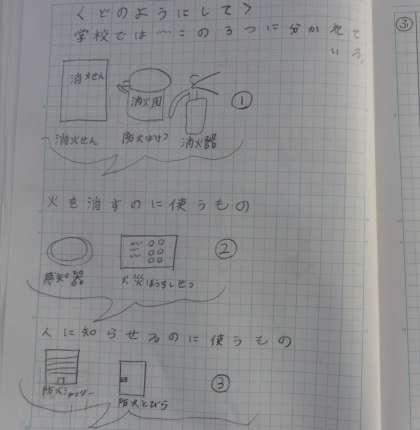 くどのようにして>
学校では〜この3つに分かれて
いう。
消火せん
消火用
①
消火せん
防火ばけつ
消火器
火を消すのに使うもの
②
感知器
火災ほうちせつ
人に知らせるのに使うもの
③
防火シャッター
防火とびら
③